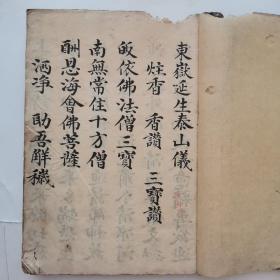 東嶽延生泰山儀
炷香 香讚 三寶讚
皈依佛法僧三寶
南無常住十方僧
酬恩海會佛菩薩
洒淨 助吾觧穢